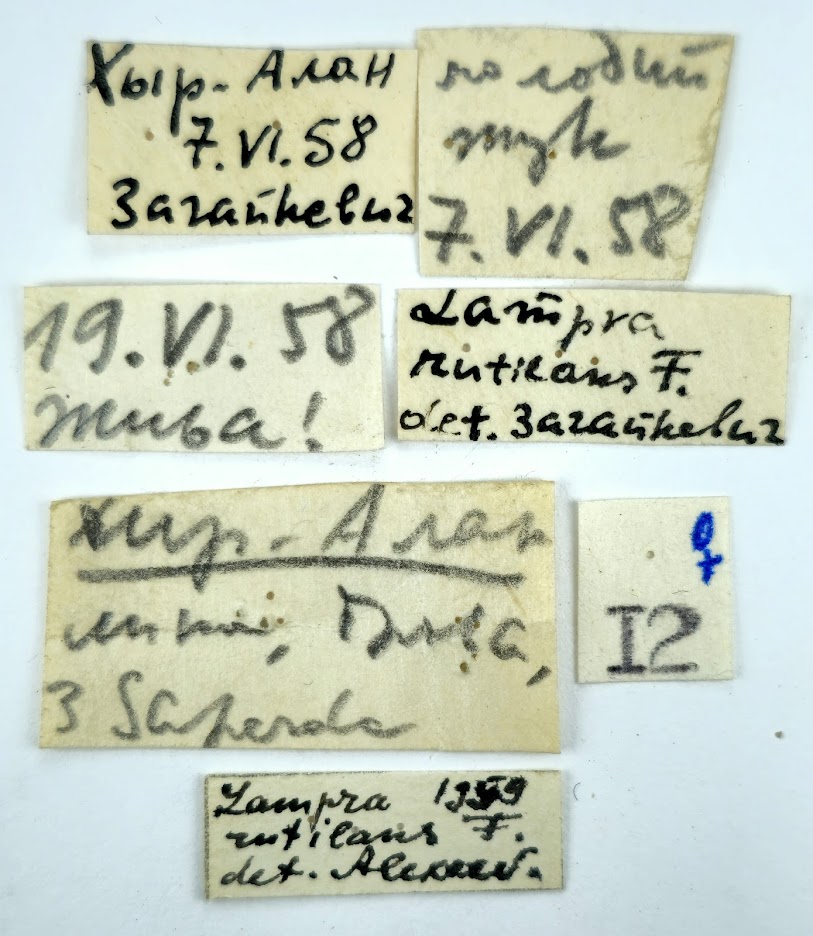 Хыр-Алан
7.VI.58
Загайкевич
молодий
жук
7.VI.58
19.VI.58
жива!
Lampra
rutilans F.
det. Загайкевич
Хир-Алан
липа,
з Saperda
♀
I2
Lampra 1959
rutilans F.
det. Alexeev.